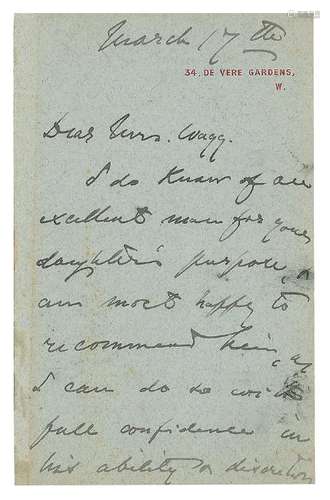 March 17th
34, DE VERE GARDENS,
W.
Dear Mrs. Wagg.
I do know of an
excellent man for your
daughter's purpose, &
am most happy to
recommend him, as
I can do so with
full confidence in
his ability & discretion